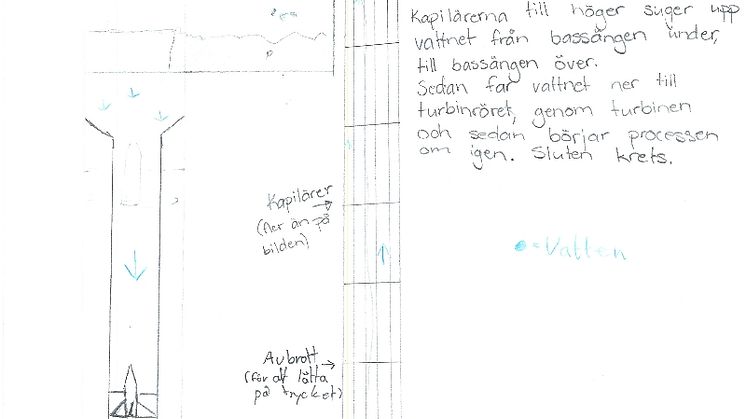 Kapilärerna till höger suger upp
vattnet från bassängen under,
till bassängen över.
Sedan far vattnet ner till
turbinröret, genom turbinen
och sedan börjar processen
om igen. Sluten krets.
Kapilärer
(fler än på
bilden)
=Vatten
Avbrott
(för att lätta
på trycket)